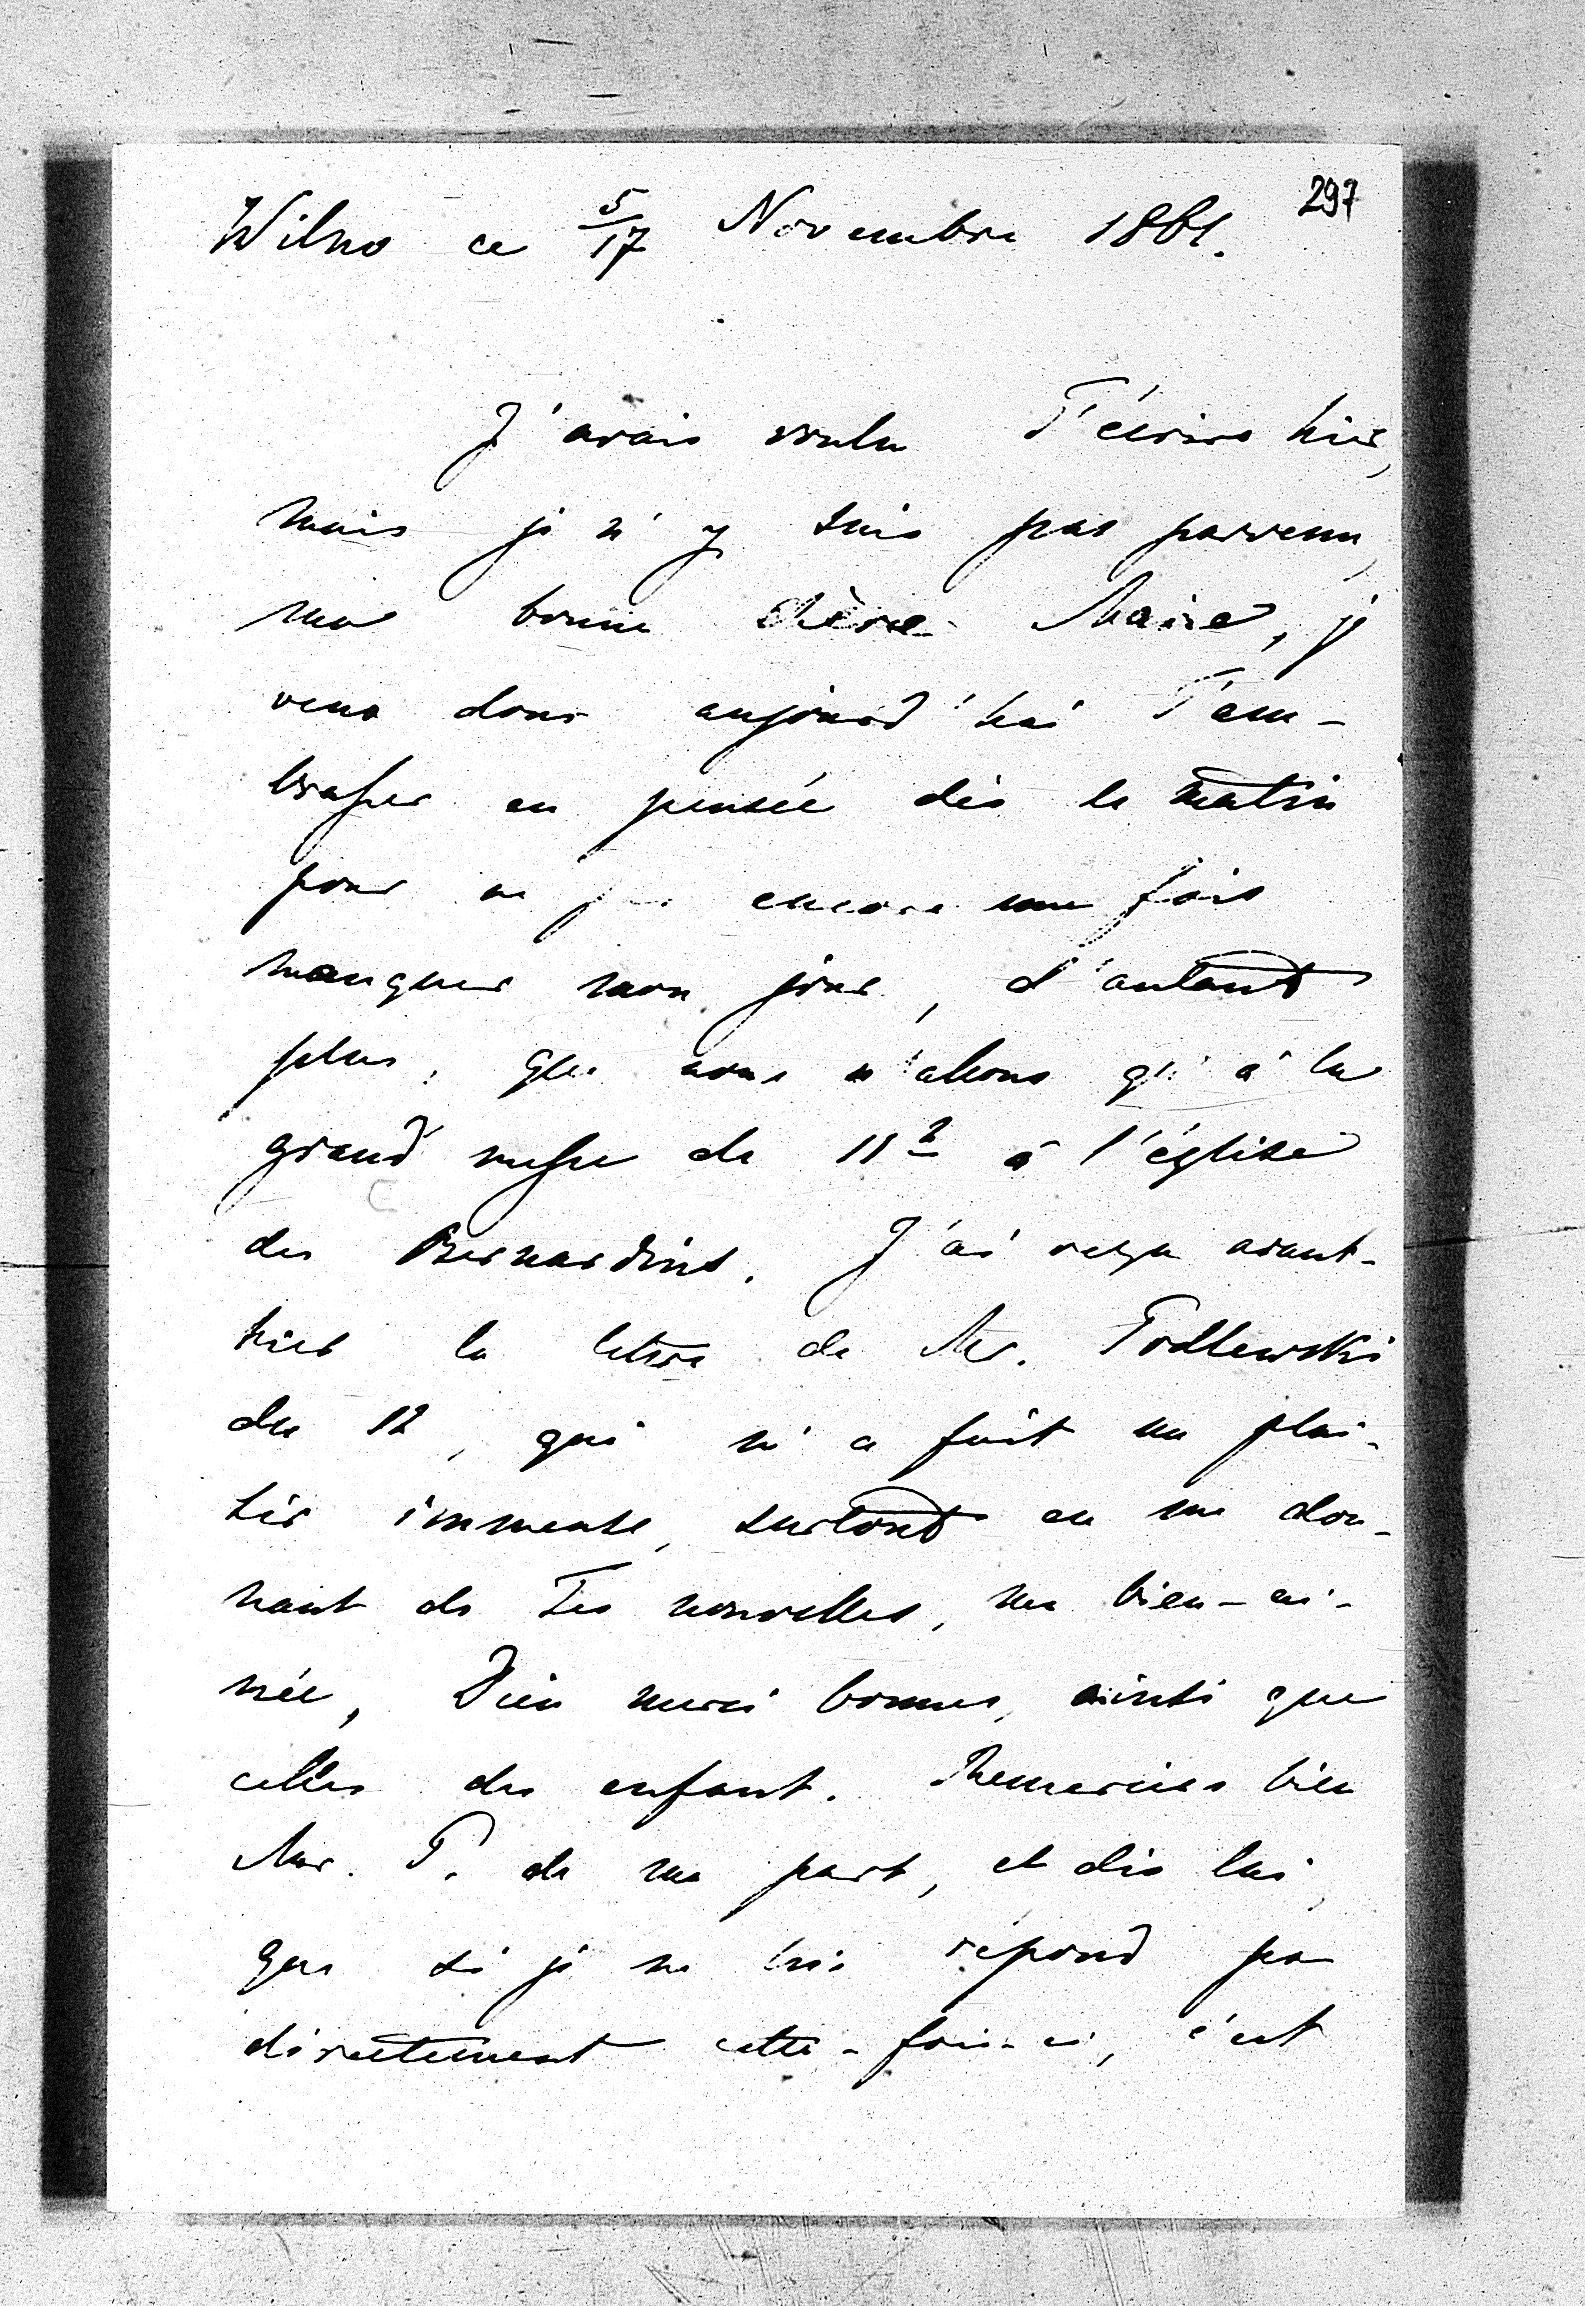 297
Wilno ce 5/17 Novembre 1861.
J'avais voulu T'écrire hier,
mais je n'y suis pas parvenu,
ma bonne chère Marie, je
viens donc aujourd'hui T'em-
brasser en pensée dès le matin
pour ne pas encore une fois
manquer mon jour, d'autant
plus, que nous n'allons qu'à la
grand messe de 11 à l'église
des Bernardins. J'ai reçu avant-
hier la lettre de Mr. Podlewski
du 12, qui m'a fait un plai-
sir immense, surtout en me don-
nant de Tes nouvelles, ma bien-ai-
mée, Dieu merci bonnes, ainsi que
celles des enfant. Remercies bien
Mr. P. de ma part, et dis lui,
que si je ne lui répond pas
directement cette-fois-ci, c'est